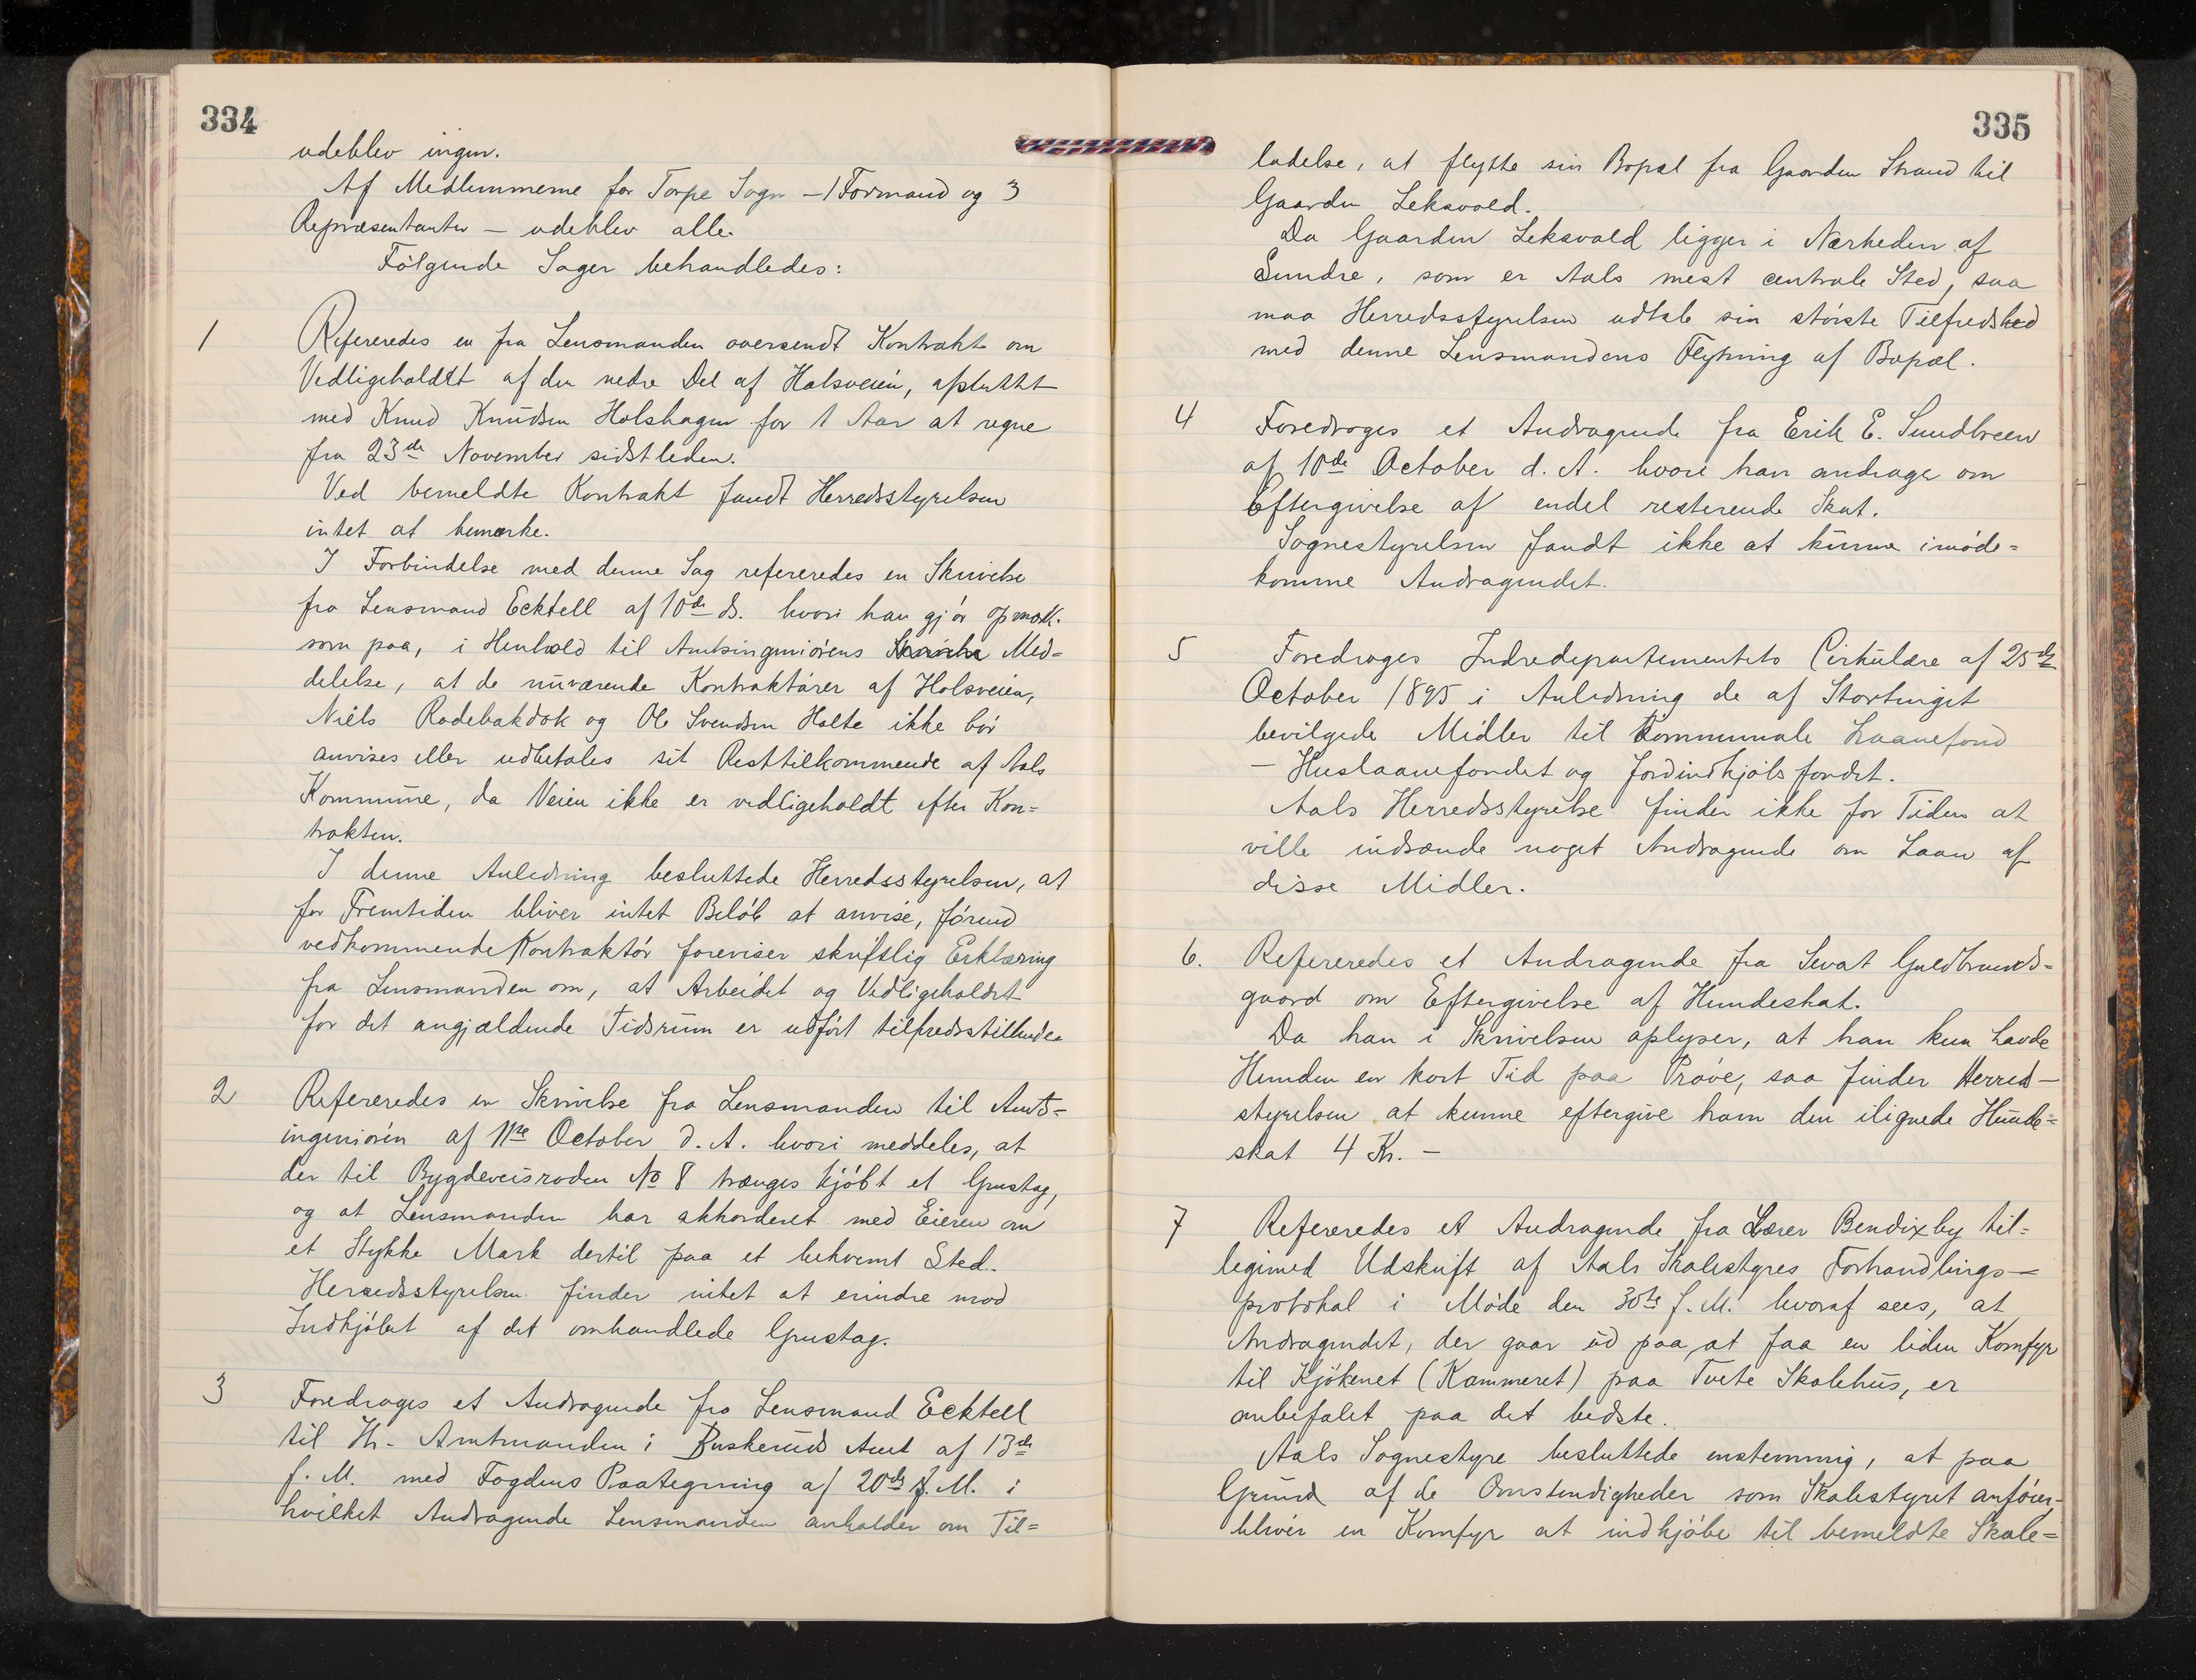 334
udeblev ingen.
Af Medlemmerne for Torpe Sogn – 1 Formand og 3
Repræsentanter – udeblev alle.
Følgende Sager behandledes:
1 Refereredes en fra Lensmanden oversendt Kontrakt om
Vedligeholdet af den nedre Del af Holsveien, afsluttet
med Knud Knudsen Holshagen for 1 Aar at regne
fra 23de November sidstleden.
Ved bemeldte Kontrakt fandt Herredsstyrelsen
intet at bemærke.
I Forbindelse med denne Sag refereredes en Skrivelse
fra Lensmand Ecktell af 10de ds. hvori han gjør opmærk-
som paa, i Henhold til Amtsingeniørens Med=
delelse, at de nuværende Kontraktører af Holsveien,
Niels Rodebakdok og Ole Svendsen Holte ikke bør
anvises eller udbetales sit Resttilkommende af Aals
Kommune, da Veien ikke er vedligeholdt efter Kon=
trakten.
I denne Anledning besluttede Herredsstyrelsen, at
for Fremtiden bliver intet Beløb at anvise, førend
vedkommende Kontraktør foreviser skriftlig Erklæring
fra Lensmanden om, at Arbeidet og Vedligeholdet
for det angjældende Tidsrum er udført tilfredsstillende.
2 Refereredes en Skrivelse fra Lensmanden til Amts=
ingeniøren af 11te October d. A. hvori meddeles, at
der til Bygdeveisroden No 8 trænges kjøbt et Grustag,
og at Lensmanden har akkorderet med Eieren om
et Stykke Mark dertil paa et bekvemt Sted.
Herredsstyrelsen finder intet at erindre mod
Indkjøbet af det omhandlede Grustag.
3 Foredroges et Andragende fra Lensmand Ecktell
til Hr. Amtmanden i Buskeruds Amt af 13de
f. M. med Fogdens Paategning af 20de f. M. i
hvilket Andragende Lensmanden anholder om Til=
335
ladelse, at flytte sin Bopæl fra Gaarden Strand til
Gaarden Leksvold.
Da Gaarden Leksvold ligger i Nærheden af
Sundre, som er Aals mest centrale Sted, saa
maa Herredsstyrelsen udtale sin største Tilfredshed
med denne Lensmandens Flytning af Bopæl.
4 Foredroges et Andragende fra Erik E. Sundbreen
af 10de October d. A. hvori han andrager om
Eftergivelse af endel resterende Skat.
Sognestyrelsen fandt ikke at kunne imøde=
komme Andragendet.
5 Foredroges Indredepartementets Cirkulære af 25de
October 1895 i Anledning de af Stortinget
bevilgede Midler til Kommunale Laanefond
– Huslaanefondet og Jordindkjøbsfondet.
Aals Herredsstyrelse finder ikke for Tiden at
ville indsende noget Andragende om Laan af
disse Midler.
6. Refereredes et Andragende fra Sevat Guldbrands=
gaard om Eftergivelse af Hundeskat.
Da han i Skrivelsen oplyser, at han kun havde
Hunden en kort Tid paa Prøve, saa finder Herred–
styrelsen at kunne eftergive ham den ilignede Hunde=
skat 4 Kr. –
7 Refereredes et Andragende fra Lærer Bendixby til=
legimed Udskrift af Aals Skolestyres Forhandlings–
protokol i Møde den 30te f. M. hvoraf sees, at
Andragendet, der gaar ud paa, at faa en liden Komfyr
til Kjøkenet (Kammeret) paa Tvete Skolehus, er
anbefalet paa det bedste.
Aals Sognestyre besluttede enstemmig, at paa
Grund af de Omstendigheder som Skolestyret anfører,
bliver en Komfyr at indkjøbe til bemeldte Skole=